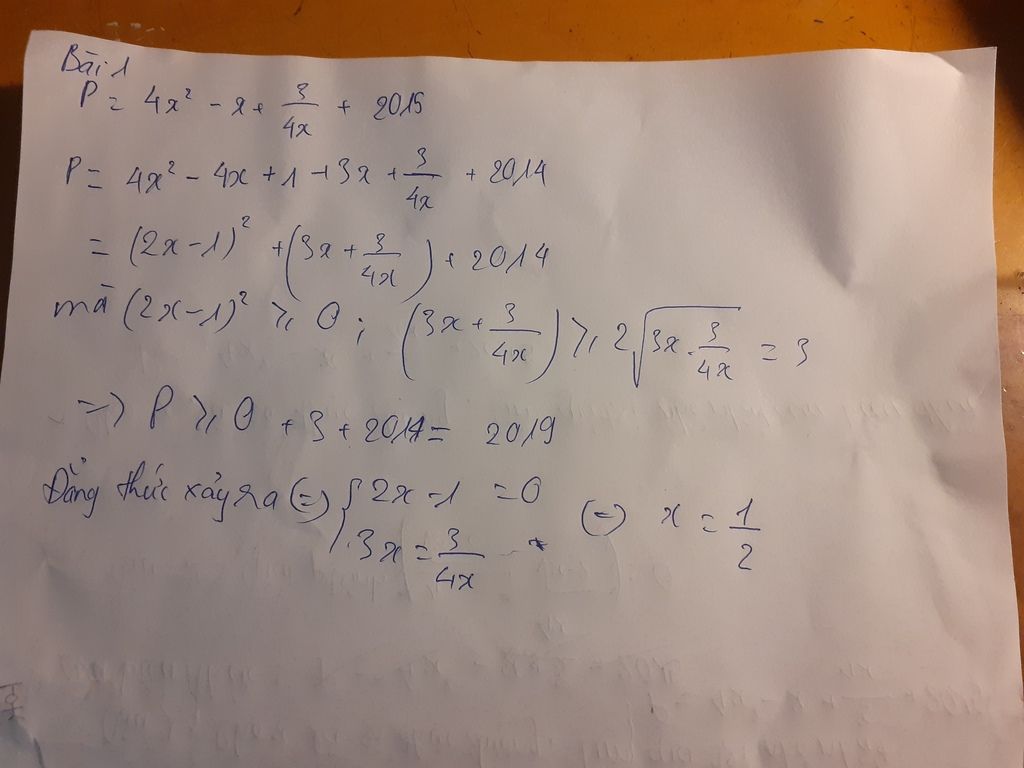 Bài 1
P = 4x² - x + 3/4x + 2015
P = 4x² - 4x + 1 + 3x + 3/4x + 2014
= (2x-1)² + (3x + 3/4x) + 2014
mà (2x-1)² ≥ 0 ; (3x + 3/4x) ≥ 2√(3x . 3/4x) = 3
=> P ≥ 0 + 3 + 2014 = 2019
Đẳng thức xảy ra (=) { 2x - 1 = 0
3x = 3/4x (=) x = 1/2